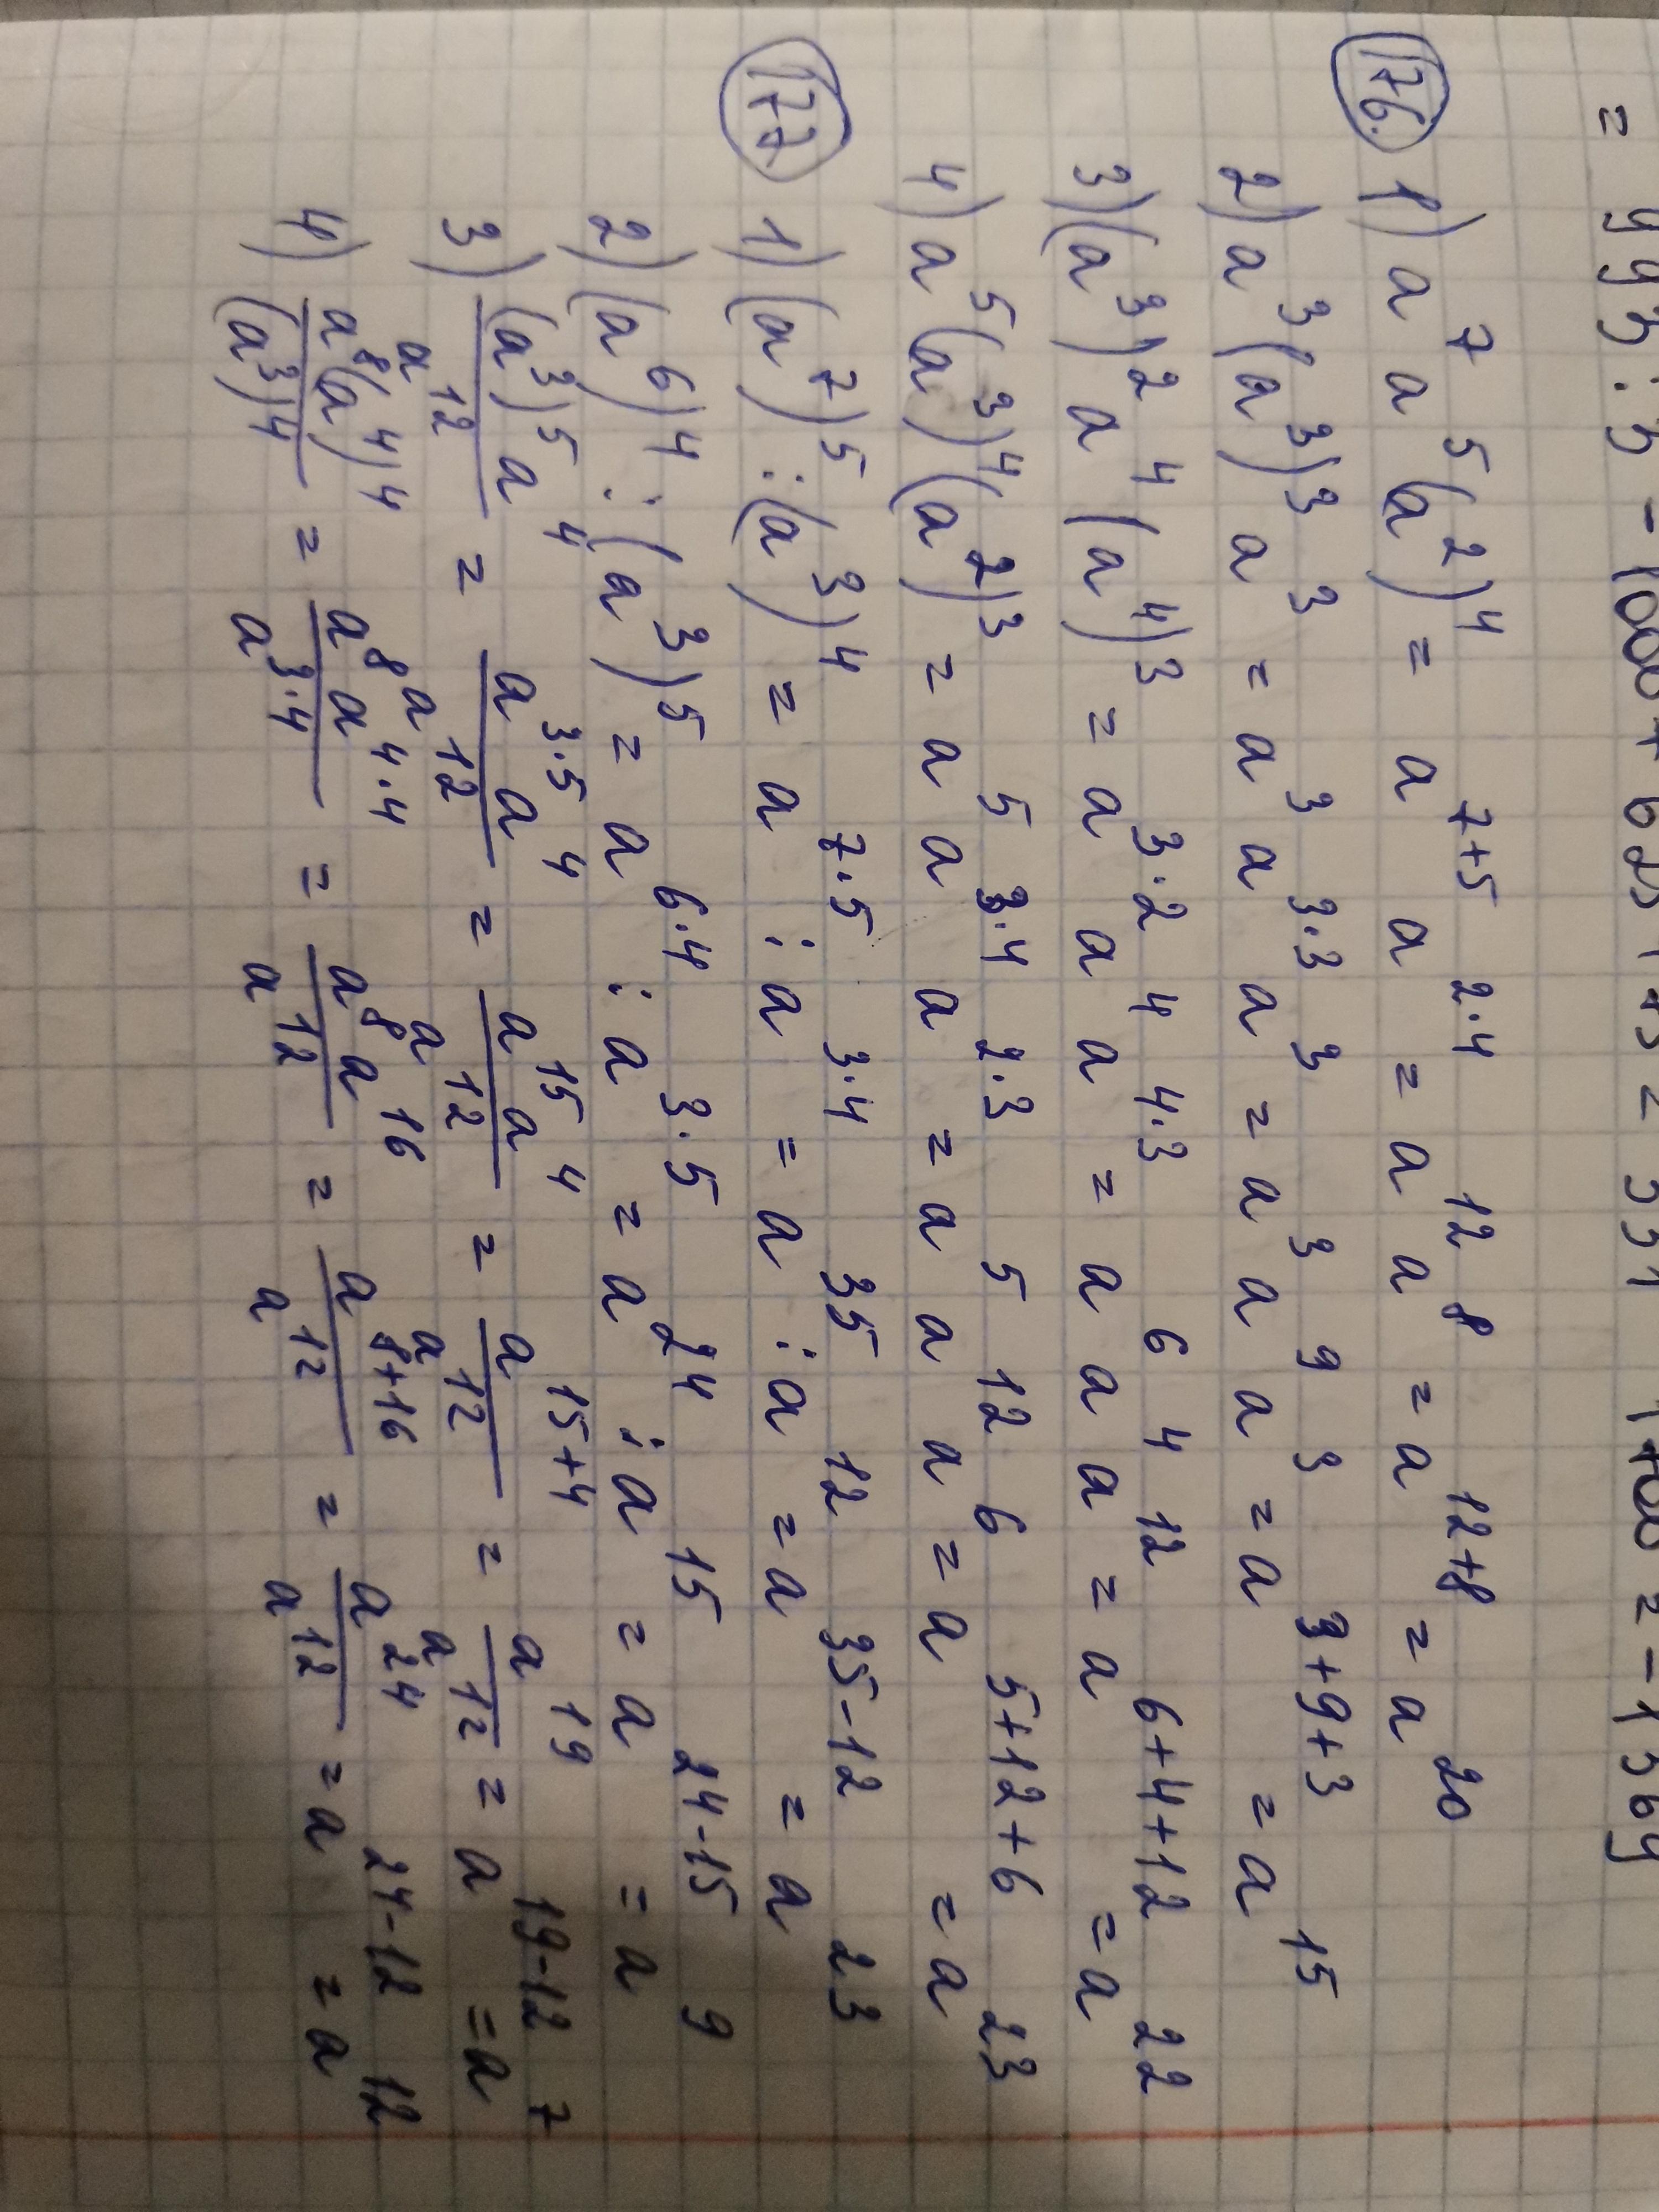 176. 1) a⁷a⁵(a²)⁴ = a⁷⁺⁵a²·⁴ = a¹²a⁸ = a¹²⁺⁸ = a²⁰
2) a³(a³)³a³ = a³a³·³a³ = a³a⁹a³ = a³⁺⁹⁺³ = a¹⁵
3) (a³)²a⁴(a⁴)³ = a³·²a⁴a⁴·³ = a⁶a⁴a¹² = a⁶⁺⁴⁺¹² = a²²
4) a⁵(a³)⁴(a²)³ = a⁵a³·⁴a²·³ = a⁵a¹²a⁶ = a⁵⁺¹²⁺⁶ = a²³
177 1) (a⁷)⁵ : (a³)⁴ = a⁷·⁵ : a³·⁴ = a³⁵ : a¹² = a³⁵⁻¹² = a²³
2) (a⁶)⁴ : (a³)⁵ = a⁶·⁴ : a³·⁵ = a²⁴ : a¹⁵ = a²⁴⁻¹⁵ = a⁹
3) (a³)⁵a⁴/a¹² = a³·⁵a⁴/a¹² = a¹⁵a⁴/a¹² = a¹⁵⁺⁴/a¹² = a¹⁹/a¹² = a¹⁹⁻¹² = a⁷
4) a⁸(a⁴)⁴/(a³)⁴ = a⁸a⁴·⁴/a³·⁴ = a⁸a¹⁶/a¹² = a⁸⁺¹⁶/a¹² = a²⁴/a¹² = a²⁴⁻¹² = a¹²